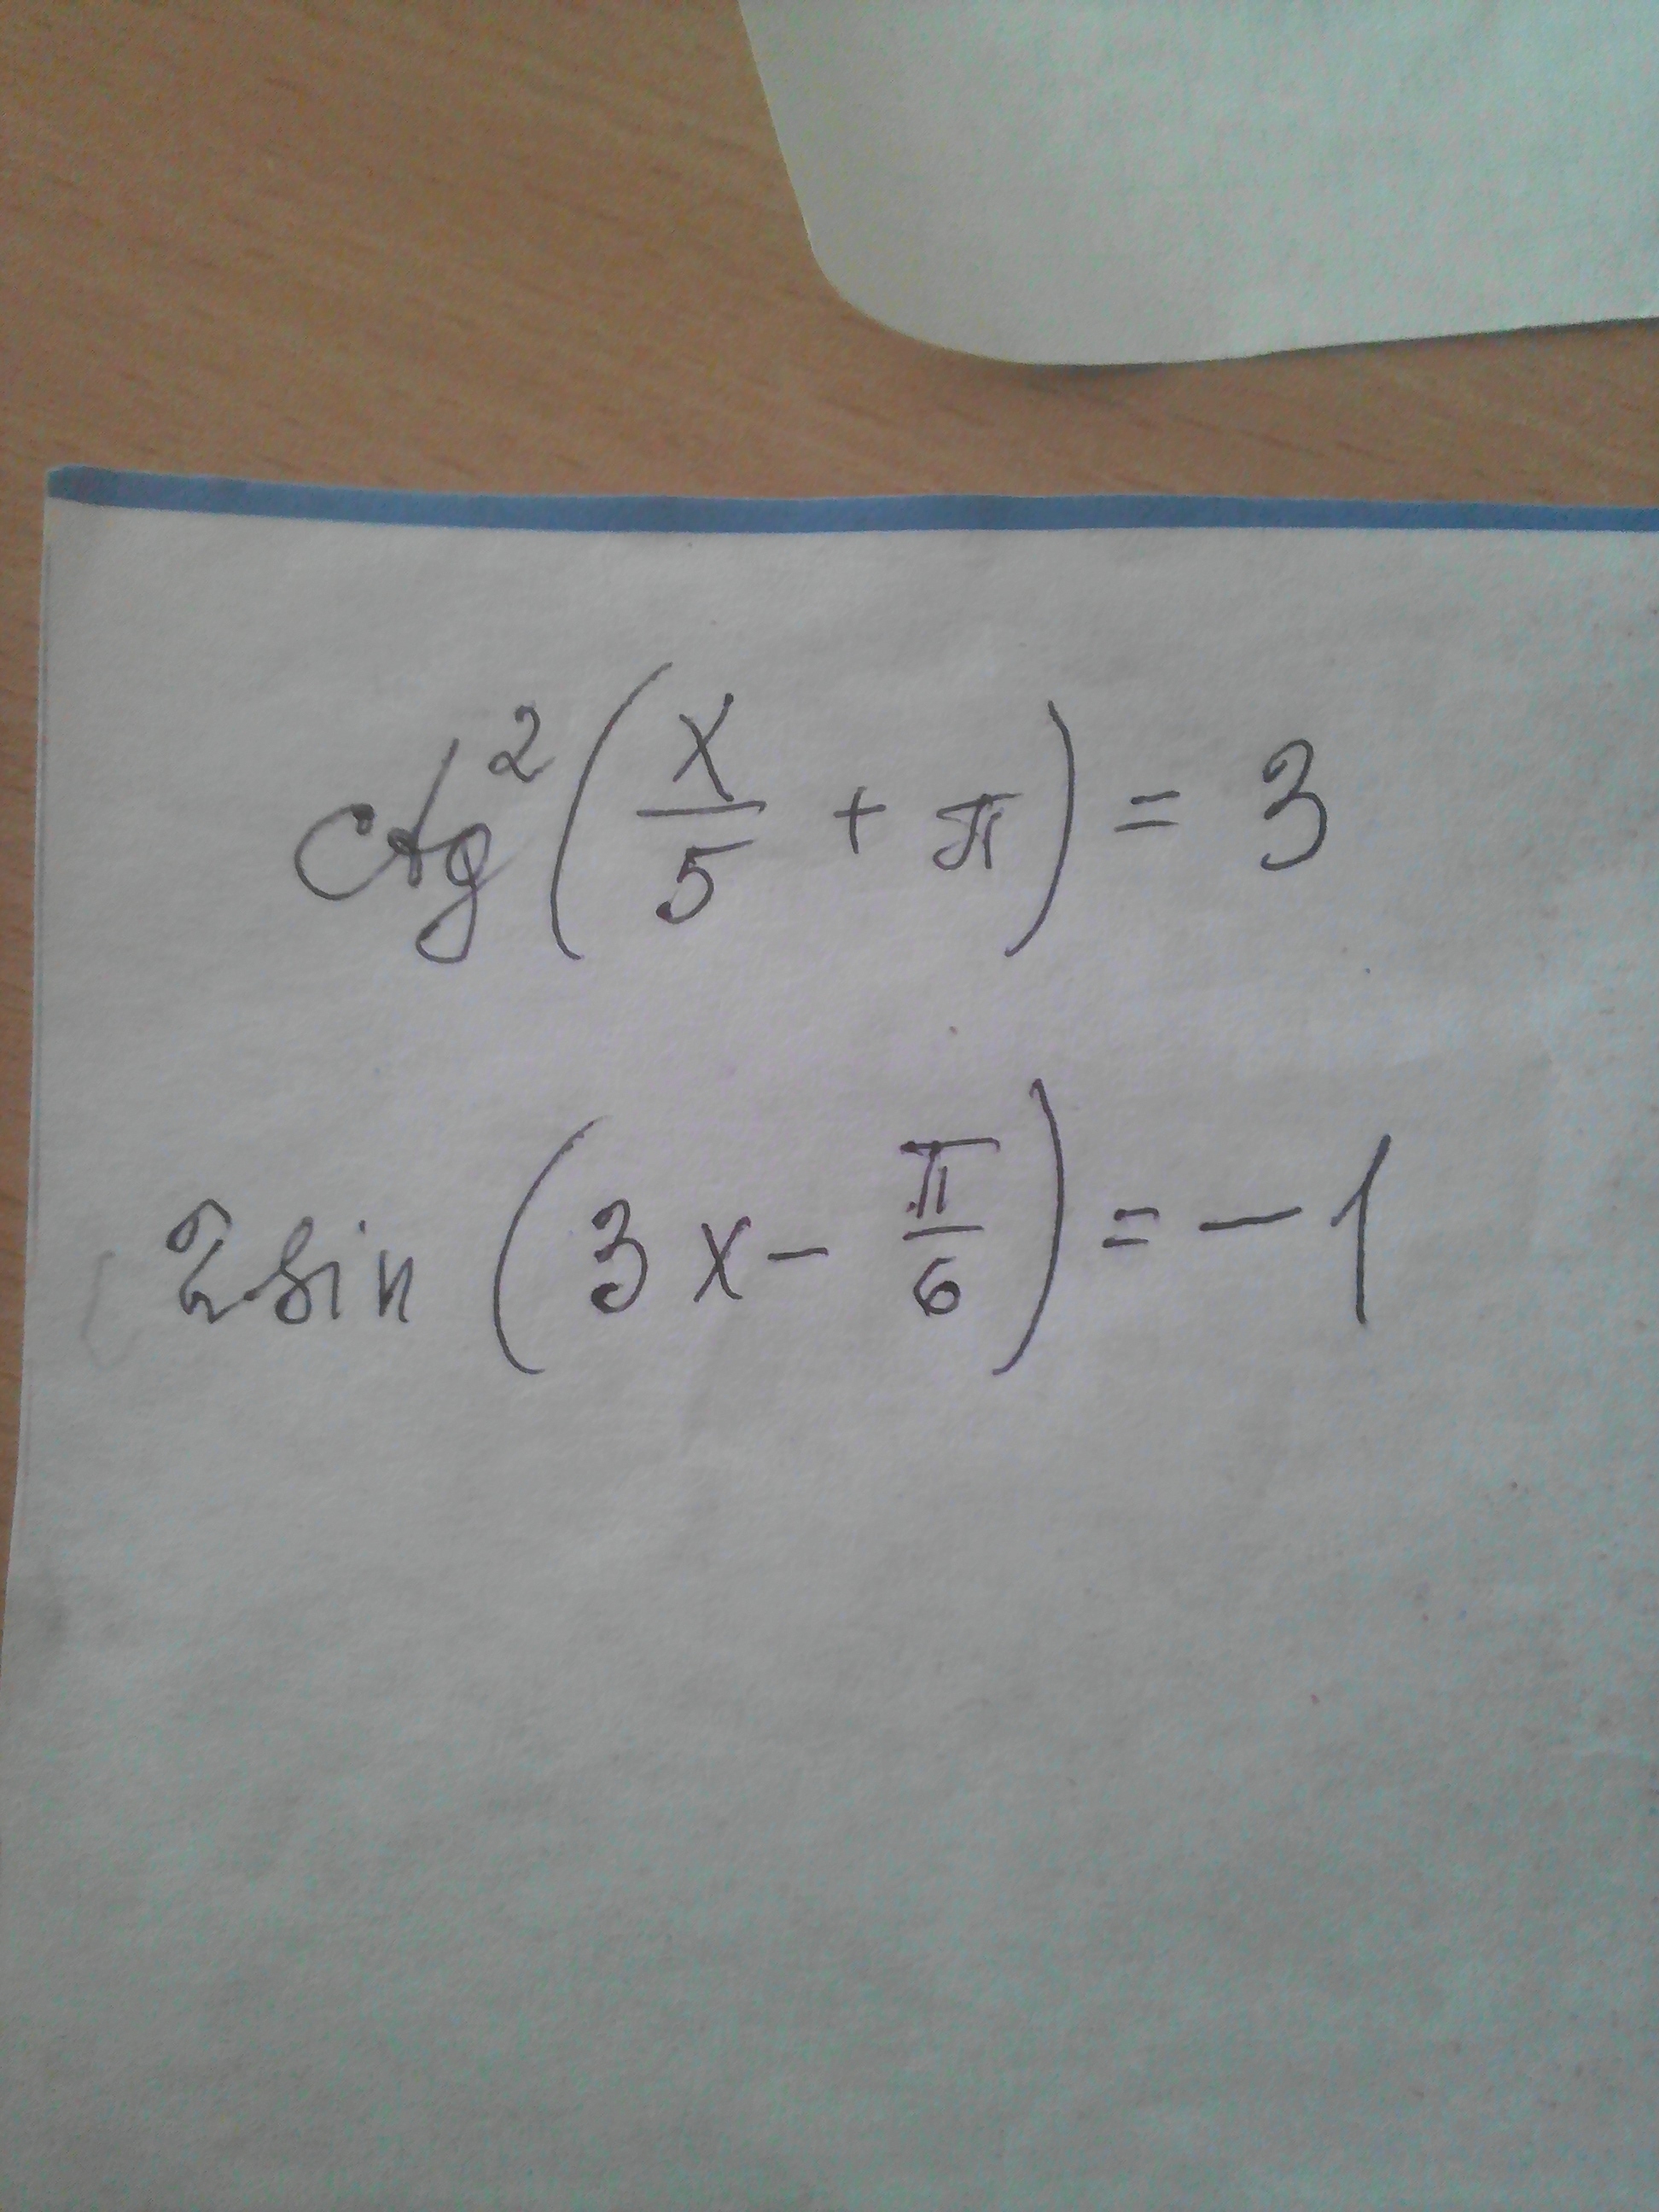 ctg²(x/5 + π) = 3
2sin(3x - π/6) = -1